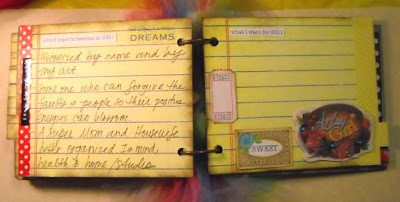 who I hope to become in 2011
DREAMS
Recognized by name and by
my art.
Some one who can forgive the
faults in people so their positive
energies can blossom.
A Super Mom and Housewife
better organized in mind,
health & home/studio.
what I want for 2011
TICKET
SWEET